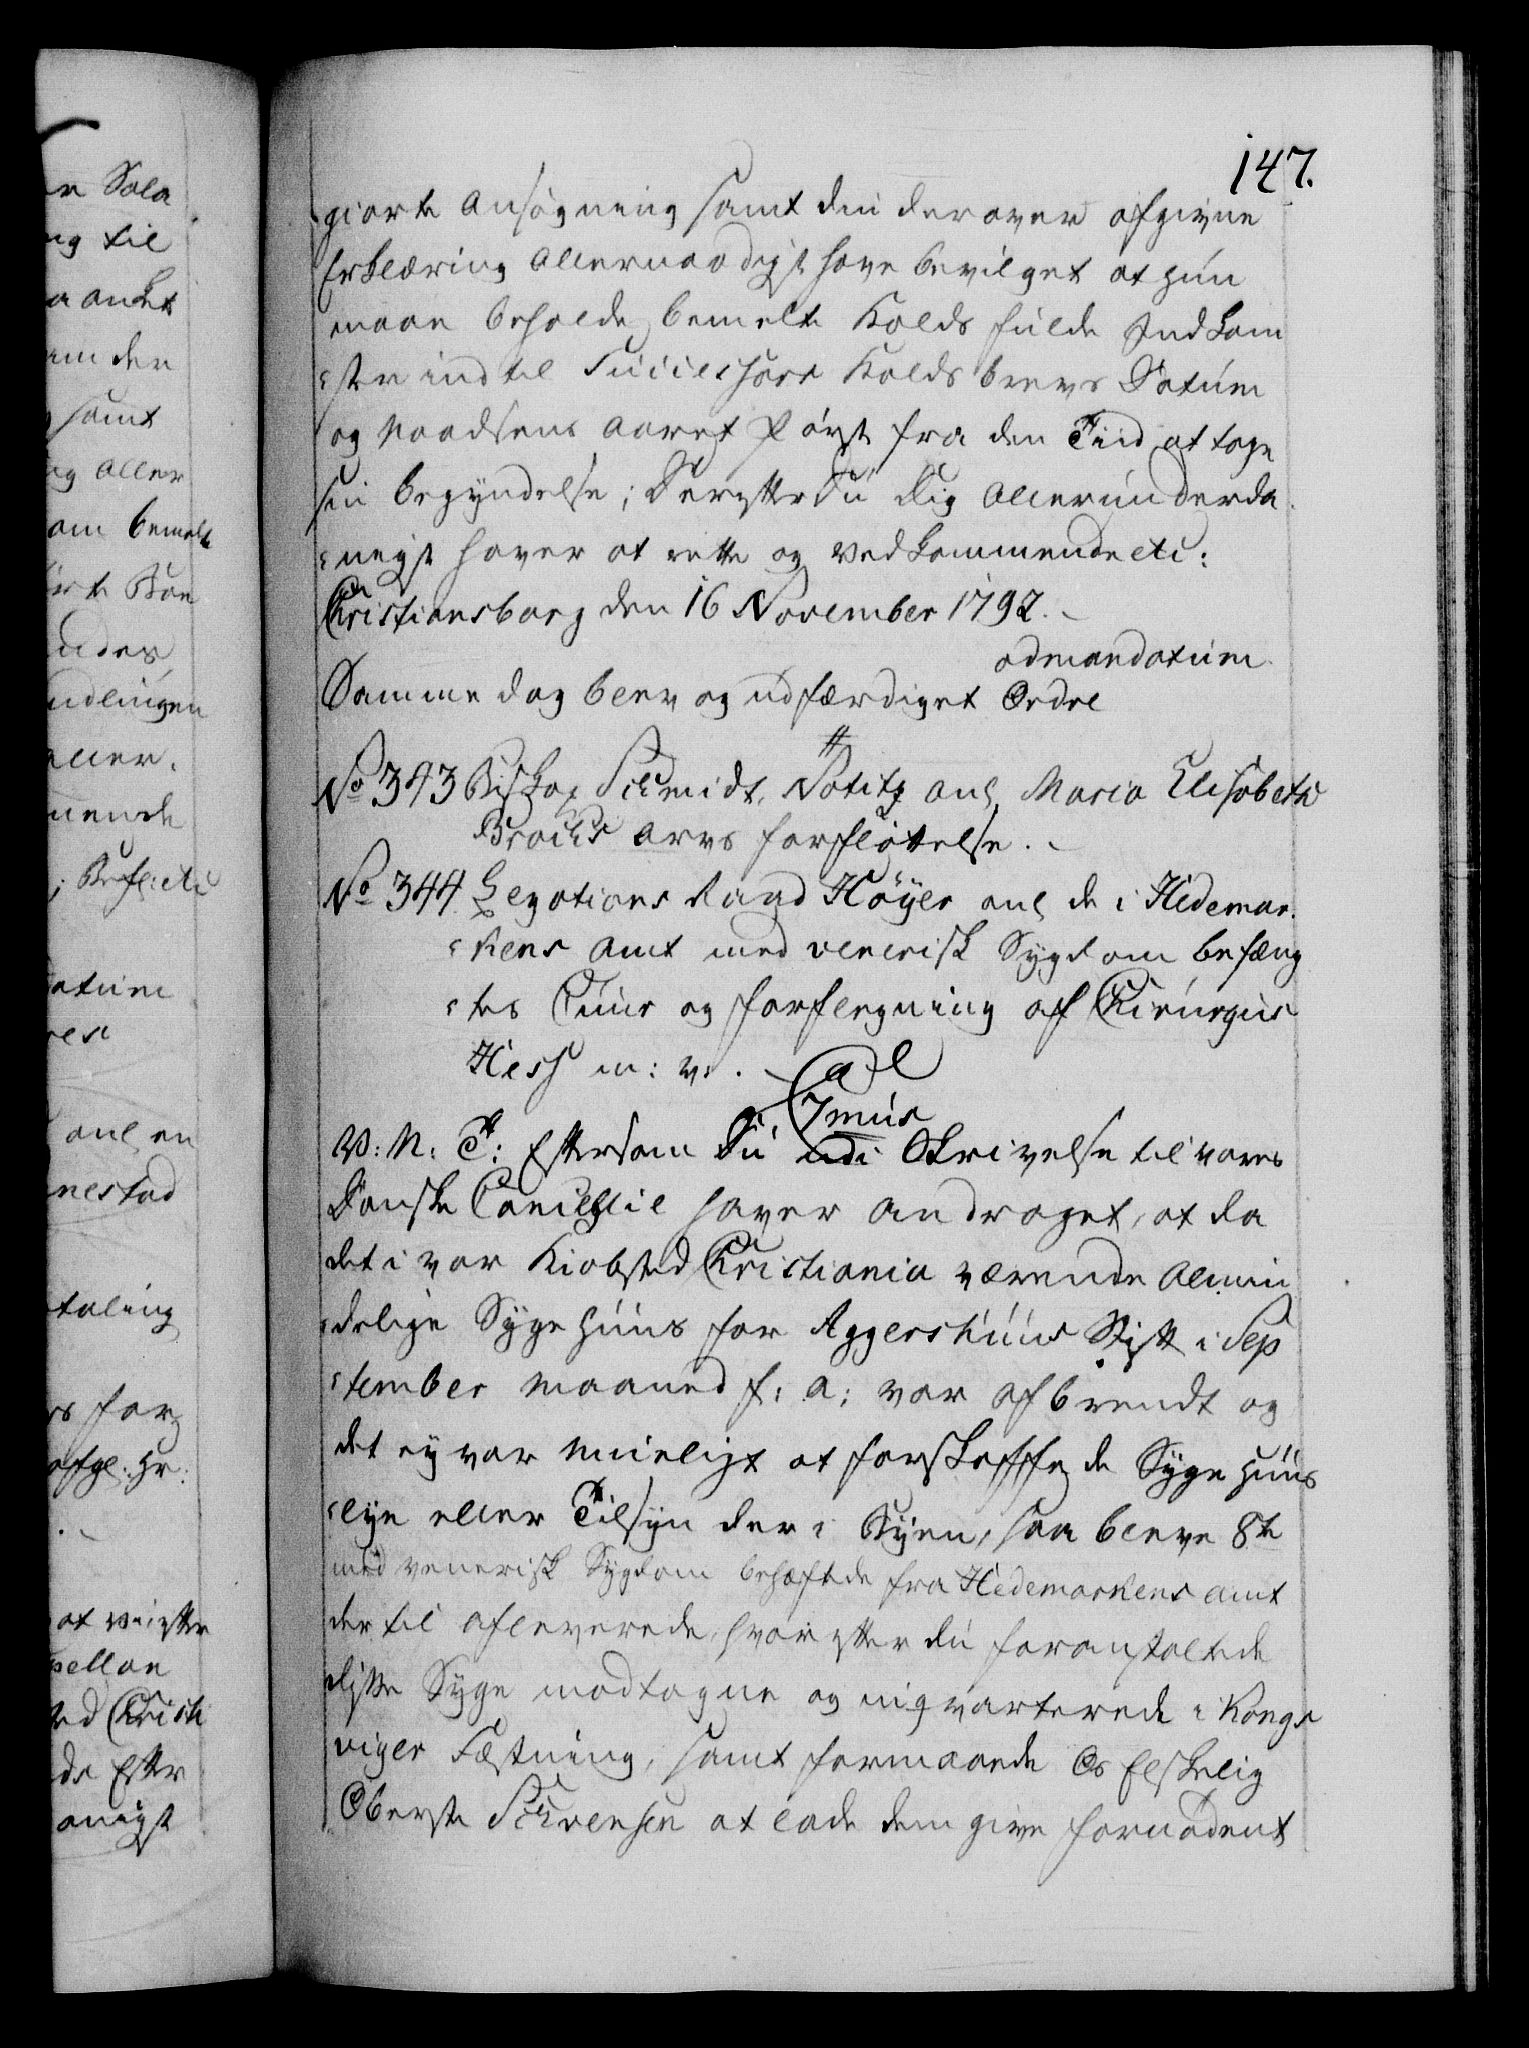 147.
giorte Ansøgning samt din derover afgivne
Erklæring Allernaadigst have bevilget at hun
maae beholde bemelte Kalds fulde Indkom
ster indtil Successors Kalds brevs Datum
og Naadsens Aaret først fra den Tiid at tage
sin begyndelse; Derefter Du Dig Allerunderda
nigst haver at rette og vedkommende etc:
Christiansborg den 16 November 1792.
admandatum
Samme dag blev og udfærdiget Ordre
No 343 Biskop Schmidt, Notitz ang Maria Elisabeth
Brochs Arvs forflÿttelse.
No 344 Legations Raad Höyer ang de i Hedemar
kens Amt med venerisk Sygdom befæng
tes Cuur og forflegning af Chirurgus
Hess m: v.
C 7mus
V: N: T: Eftersom Du udi Skrivelse til vores
Danske Cancellie haver andraget, at da
det i vor Kiøbsted Christiania værende Almin
delige Syge Huus for Aggershuus Stift i Sep
tember Maaned f: a: var afbrendt og
det ey var mueligt at forskaffe de Syge Huus
lye eller Tilsyn der i Byen, saa bleve 8te
med venerisk Sygdom behæftede fra Hedemarkens Amt
dertil afleverede, hvorefter du foranstaltede
disse Syge modtagne og inqvarterede i Kongs
vinger Fæstning, samt formaaede Os Elskelig
Oberste Schvensen at lade dem give fornødent